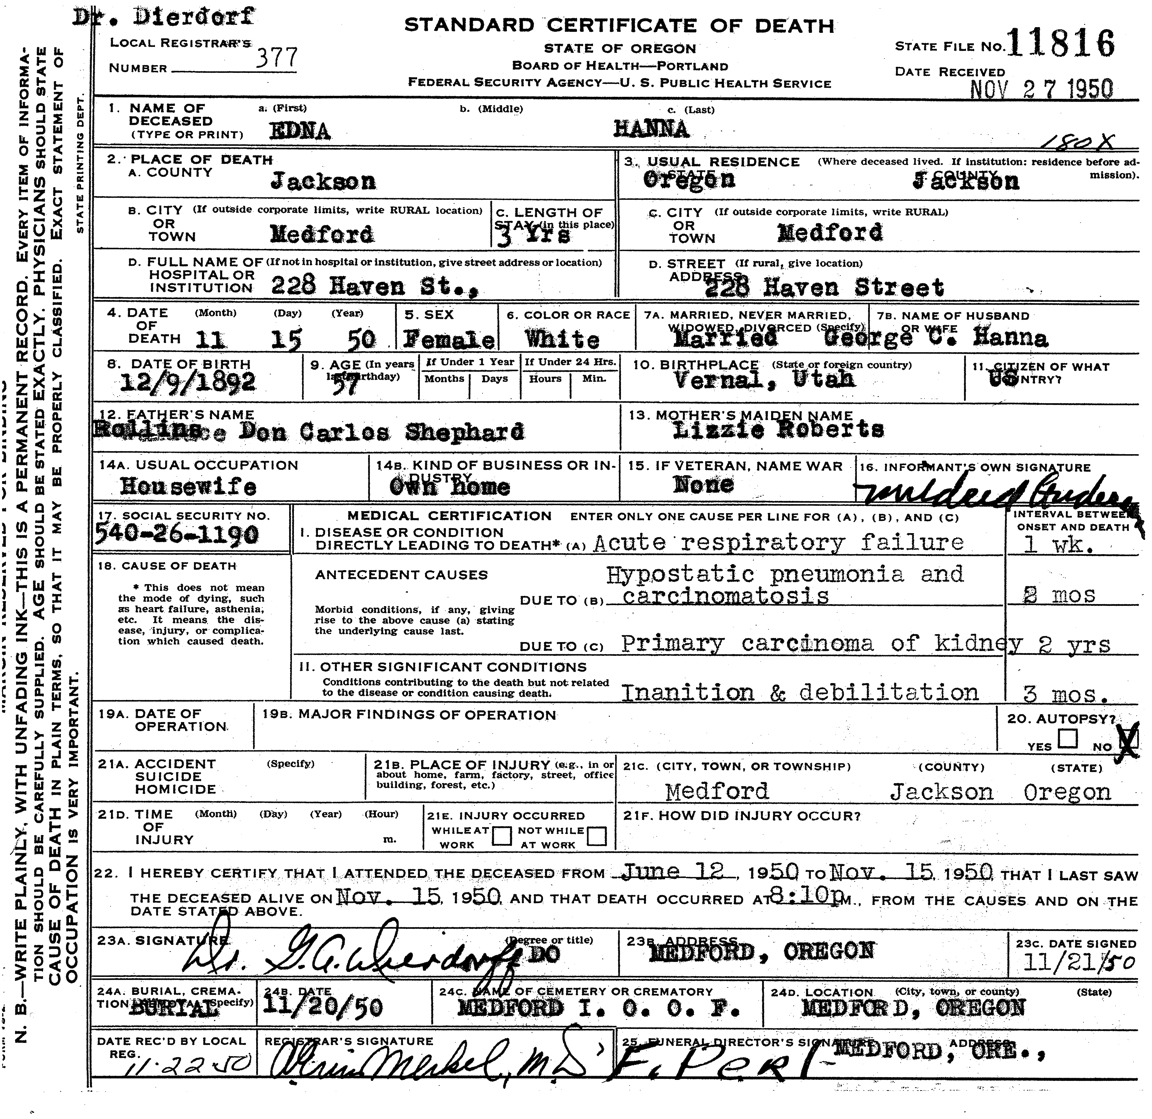 Dr. Dierdorf
STANDARD CERTIFICATE OF DEATH
LOCAL REGISTRAR'S NUMBER 377
STATE OF OREGON
BOARD OF HEALTH—PORTLAND
FEDERAL SECURITY AGENCY—U. S. PUBLIC HEALTH SERVICE
STATE FILE NO. 11816
DATE RECEIVED NOV 27 1950
N. B.—WRITE PLAINLY, WITH UNFADING INK—THIS IS A PERMANENT RECORD. EVERY ITEM OF INFORMA-
TION SHOULD BE CAREFULLY SUPPLIED. AGE SHOULD BE STATED EXACTLY. PHYSICIANS SHOULD STATE
CAUSE OF DEATH IN PLAIN TERMS, SO THAT IT MAY BE PROPERLY CLASSIFIED. EXACT STATEMENT OF
OCCUPATION IS VERY IMPORTANT.
STATE PRINTING DEPT.
1. NAME OF DECEASED (TYPE OR PRINT) a. (First) EDNA b. (Middle) c. (Last) HANNA
180X
2. PLACE OF DEATH
A. COUNTY Jackson
3. USUAL RESIDENCE (Where deceased lived. If institution: residence before admission).
STATE Oregon COUNTY Jackson
B. CITY OR TOWN (If outside corporate limits, write RURAL location) Medford
C. LENGTH OF STAY (in this place) 3 Yrs
C. CITY OR TOWN (If outside corporate limits, write RURAL) Medford
D. FULL NAME OF HOSPITAL OR INSTITUTION (If not in hospital or institution, give street address or location) 228 Haven St.,
D. STREET ADDRESS (If rural, give location) 228 Haven Street
4. DATE OF DEATH (Month) 11 (Day) 15 (Year) 50
5. SEX Female
6. COLOR OR RACE White
7A. MARRIED, NEVER MARRIED, WIDOWED, DIVORCED (Specify) Married
7B. NAME OF HUSBAND OR WIFE George C. Hanna
8. DATE OF BIRTH 12/9/1892
9. AGE (In years last birthday) 57
If Under 1 Year Months Days
If Under 24 Hrs. Hours Min.
10. BIRTHPLACE (State or foreign country) Vernal, Utah
11. CITIZEN OF WHAT COUNTRY? US
12. FATHER'S NAME Rollins Don Carlos Shephard
13. MOTHER'S MAIDEN NAME Lizzie Roberts
14A. USUAL OCCUPATION Housewife
14B. KIND OF BUSINESS OR INDUSTRY Own home
15. IF VETERAN, NAME WAR None
16. INFORMANT'S OWN SIGNATURE Mildred
17. SOCIAL SECURITY NO. 540-26-1190
MEDICAL CERTIFICATION ENTER ONLY ONE CAUSE PER LINE FOR (A), (B), AND (C)
INTERVAL BETWEEN ONSET AND DEATH
18. CAUSE OF DEATH
* This does not mean
the mode of dying, such
as heart failure, asthenia,
etc. It means the dis-
ease, injury, or complica-
tion which caused death.
I. DISEASE OR CONDITION DIRECTLY LEADING TO DEATH* (A) Acute respiratory failure 1 wk.
ANTECEDENT CAUSES
Morbid conditions, if any, giving
rise to the above cause (a) stating
the underlying cause last.
DUE TO (B) Hypostatic pneumonia and carcinomatosis 2 mos
DUE TO (C) Primary carcinoma of kidney 2 yrs
II. OTHER SIGNIFICANT CONDITIONS
Conditions contributing to the death but not related
to the disease or condition causing death.
Inanition & debilitation 3 mos.
19A. DATE OF OPERATION
19B. MAJOR FINDINGS OF OPERATION
20. AUTOPSY? YES NO X
21A. ACCIDENT SUICIDE HOMICIDE (Specify)
21B. PLACE OF INJURY (e.g., in or about home, farm, factory, street, office building, forest, etc.)
21C. (CITY, TOWN, OR TOWNSHIP) Medford (COUNTY) Jackson (STATE) Oregon
21D. TIME OF INJURY (Month) (Day) (Year) (Hour) m.
21E. INJURY OCCURRED WHILE AT WORK NOT WHILE AT WORK
21F. HOW DID INJURY OCCUR?
22. I HEREBY CERTIFY THAT I ATTENDED THE DECEASED FROM June 12, 1950 TO Nov. 15, 1950 THAT I LAST SAW
THE DECEASED ALIVE ON Nov. 15, 1950, AND THAT DEATH OCCURRED AT 8:10p M., FROM THE CAUSES AND ON THE
DATE STATED ABOVE.
23A. SIGNATURE Dr. G.A. Dierdorff (Degree or title) DO
23B. ADDRESS MEDFORD, OREGON
23C. DATE SIGNED 11/21/50
24A. BURIAL, CREMATION, (Specify) BURIAL
24B. DATE 11/20/50
24C. NAME OF CEMETERY OR CREMATORY MEDFORD I. O. O. F.
24D. LOCATION (City, town, or county) (State) MEDFORD, OREGON
DATE REC'D BY LOCAL REG. 11-22-50
REGISTRAR'S SIGNATURE Merkel, M.D.
25. FUNERAL DIRECTOR'S SIGNATURE F. Perl ADDRESS MEDFORD, ORE.,